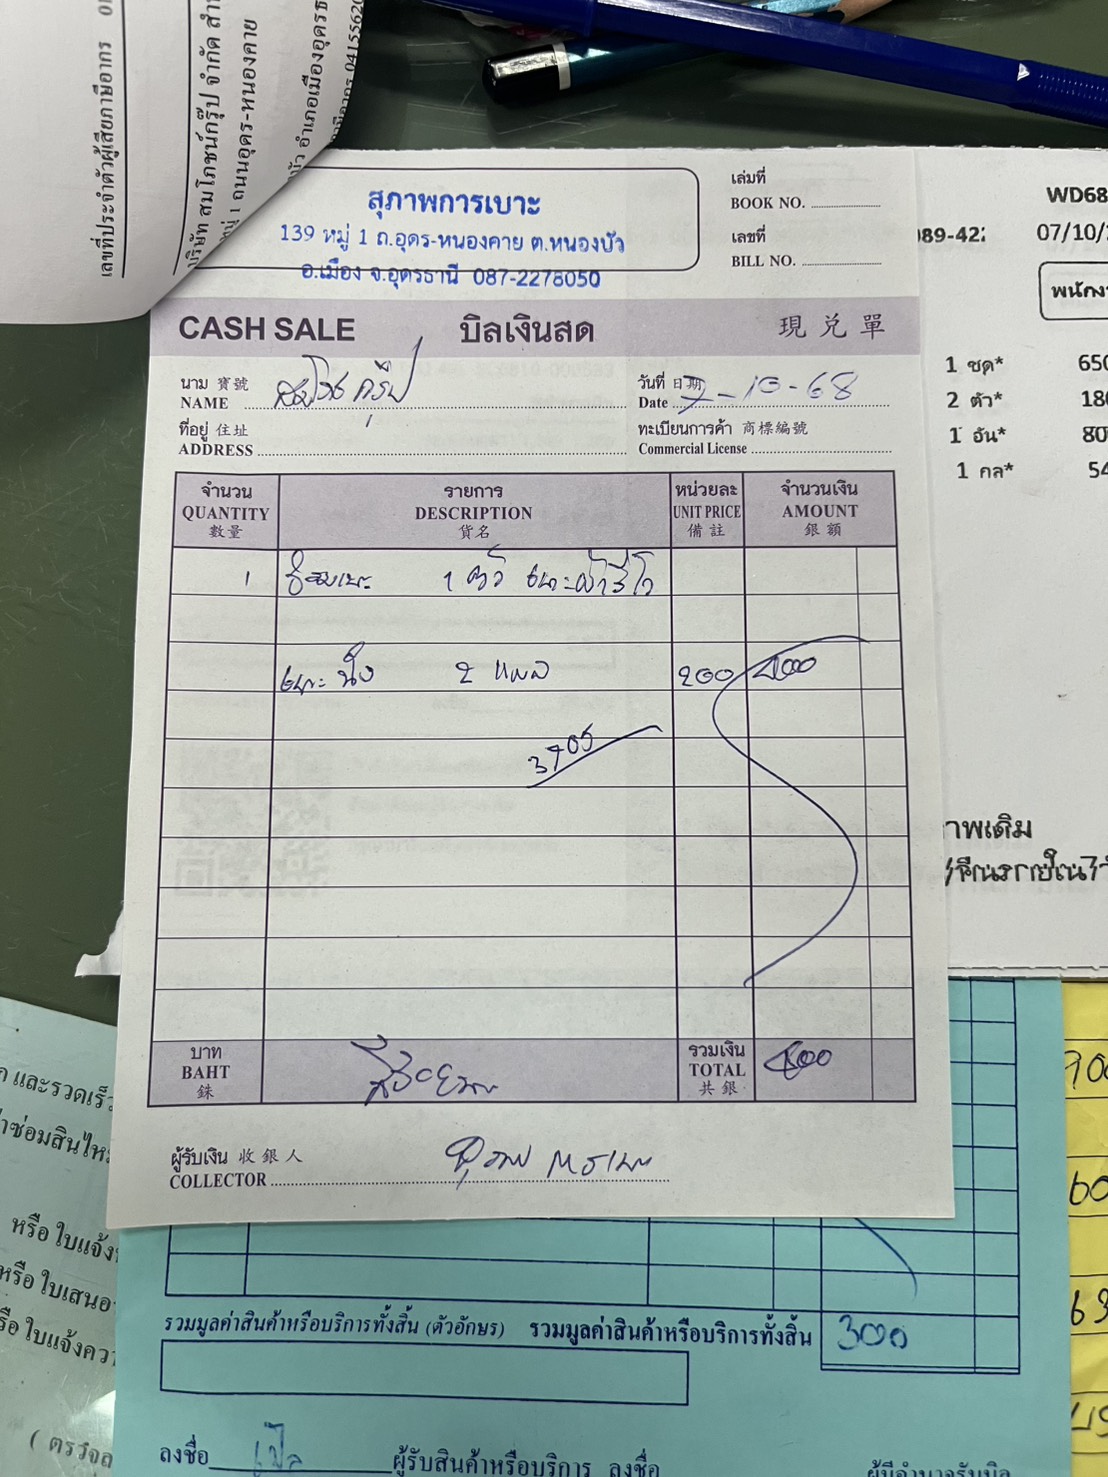 เลขที่ประจำตัวผู้เสียภาษีอากร
บริษัท สมโภชน์กรุ๊ป จำกัด
1 ถนนอุดร-หนองคาย
อำเภอเมืองอุดรธ
สุภาพการเบาะ
139 หมู่ 1 ถ.อุดร-หนองคาย ต.หนองบัว
อ.เมือง จ.อุดรธานี 087-2278050
เล่มที่
BOOK NO.
เลขที่
BILL NO.
CASH SALE บิลเงินสด 現兑單
นาม 寶號
NAME
วันที่ 日期
Date 7-10-68
ที่อยู่ 住址
ADDRESS
ทะเบียนการค้า 商標編號
Commercial License
จำนวน รายการ หน่วยละ จำนวนเงิน
QUANTITY DESCRIPTION UNIT PRICE AMOUNT
數量 貨名 備註 銀額
1 ซ่อมเบาะ 1 ตัว
เบาะนั่ง 2 200 400
3705
บาท
BAHT
銖
สี่ร้อยบาท
รวมเงิน
TOTAL
共銀
400
ผู้รับเงิน 收銀人
COLLECTOR
WD68
089-422
07/10/
พนักง
1 ชุด* 650
2 ตัว* 180
1 อัน* 80
1 กล* 54
าพเดิม
และรวดเร็ว
หรือ ใบแจ้ง
หรือ ใบเสนอ
ใบแจ้งควา
รวมมูลค่าสินค้าหรือบริการทั้งสิ้น (ตัวอักษร) รวมมูลค่าสินค้าหรือบริการทั้งสิ้น 300
ลงชื่อ ผู้รับสินค้าหรือบริการ ลงชื่อ